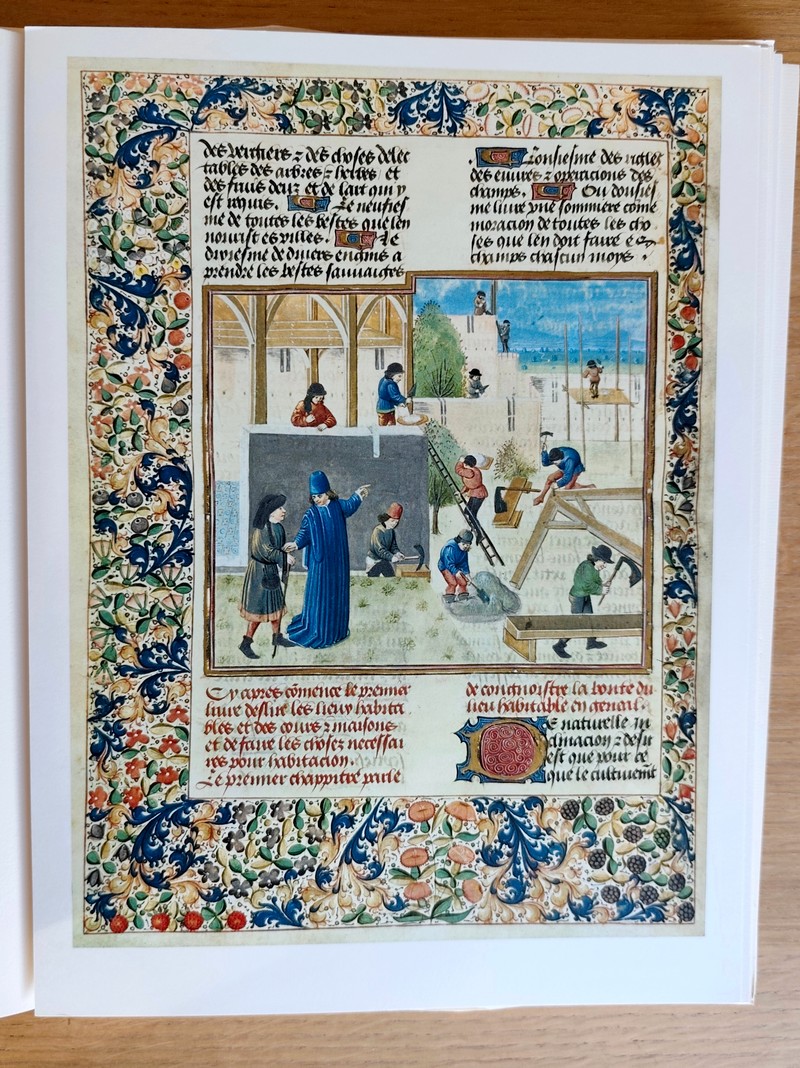 des vergiers z des choses delec
tables des arbres z herbes et
des fruis deux et de lart qui y
est requis. Le neufies
me de toutes les bestes que len
nourist es villes. Le
dixiesme de divers engins a
prendre les bestes sauvaiges
. Lonsiesme des rigles
des euures z operacions des
champs. Ou dousies
me liure vne sommiere cōme
moracion de toutes les cho
ses que len doit faire e
champs chascun moys .
Cy apres cōmence le premier
liure des lieux habita
bles et des cours z maisons
et de faire les choses necessai
res pour habitacion.
Le premier chappitre parle
de congnoistre la bonte du
lieu habitable en general
E naturelle in
clinacion z desir
est que pour ce
que le cultiuemēt